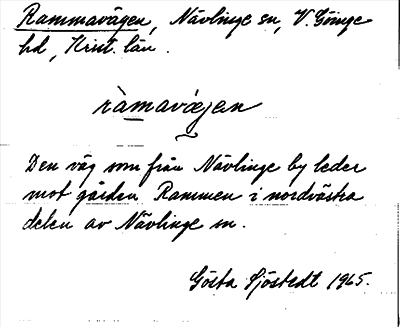 Rammavägen, Nävlinge sn, V. Göinge
hd, Krist. län.
ràmavæ̀jen
Den väg som från Nävlinge by leder
mot gården Rammen i nordvästra
delen av Nävlinge sn.
Gösta Sjöstedt 1965.